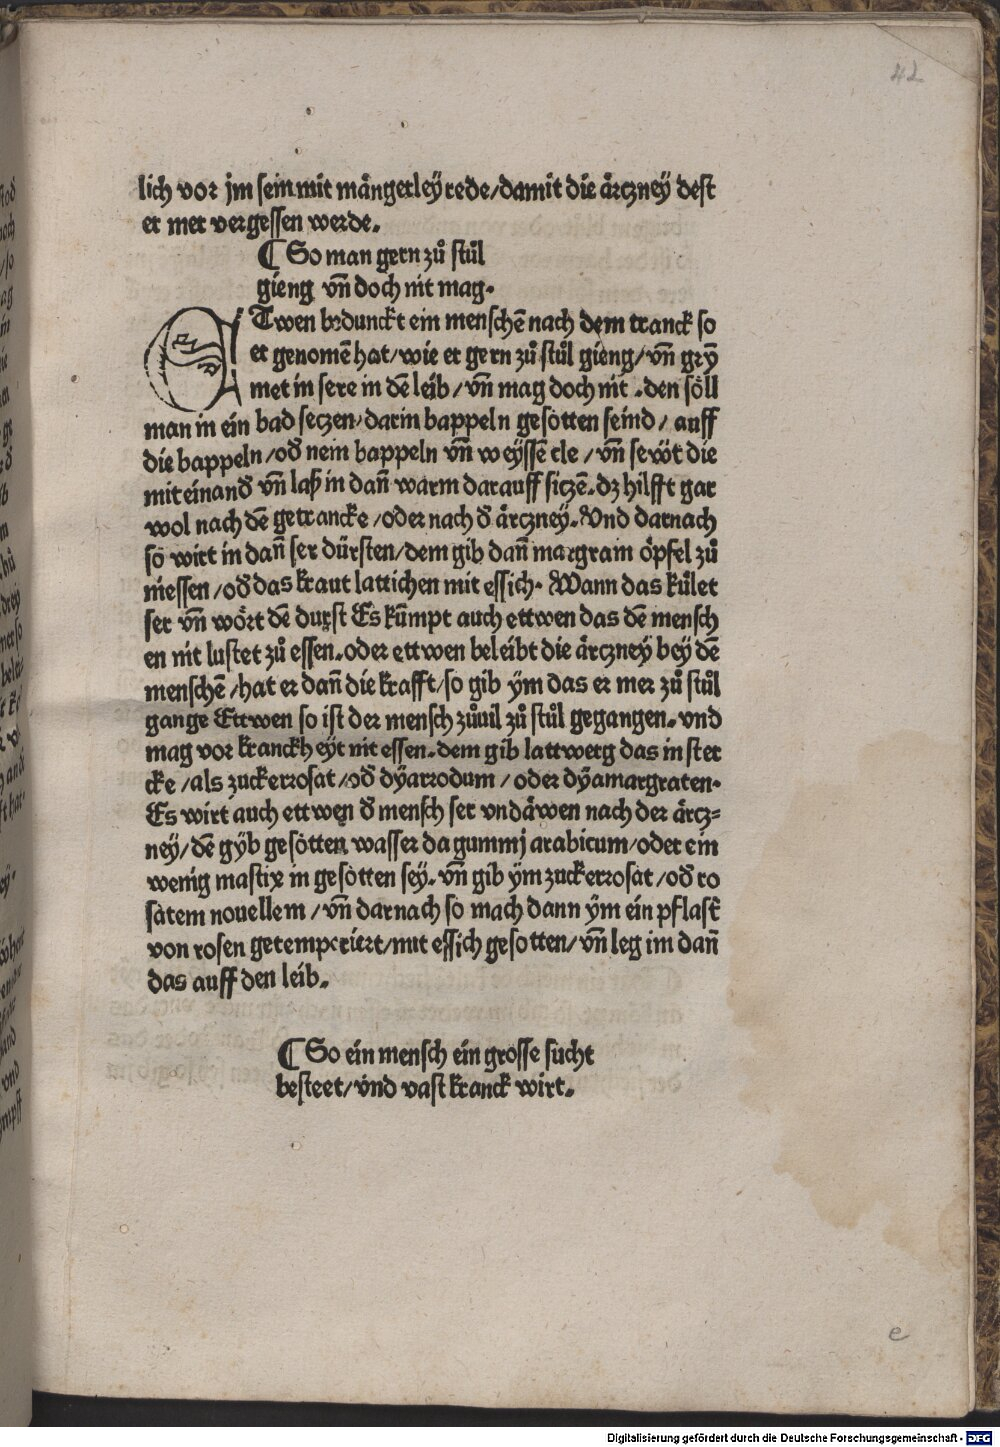 42
lich vor jm sein mit mångerley rede/damit die årczney dest
er mer vergessen werde.
¶ So man gern zů stůl
gieng vn̄ doch nit mag.
ETwen bedunckt ein menschē nach dem tranck so
er genomē hat/wie er gern zů stůl gieng/vn̄ grÿ
met in sere in dē leib/vn̄ mag doch nit .den söll
man in ein bad seczen/darin bappeln gesotten seind/ auff
die bappeln/od̄ nem bappeln vn̄ weyssē cle/vn̄ sewt die
miteinand̄ vn̄ laß in dan̄ warm darauff siczē.dz hilfft gar
wol nach dē getrancke/oder nach d̄ årczney.Und darnach
so wirt in dan̄ ser dürsten/dem gib dan̄ margram öpfel zů
niessen/od̄ das kraut lattichen mit essich. Wann das kůlet
ser vn̄ wört dē durst Es kūmpt auch ettwen das dē mensch
en nit lustet zů essen.oder ettwen beleibt die årczney bey dē
menschē/hat er dan̄ die krafft/so gib ym das er mer zů stůl
gange Ettwen so ist der mensch zůuil zů stůl gegangen.vnd
mag vor kranckheyt nit essen.dem gib lattwerg das in ster
cke/als zuckerrosat/od̄ dyarrodum/oder dyamargraten.
Es wirt auch ettwen d̄ mensch ser vndåwen nach der årcz=
ney/dē gyb gesotten wasser da gummj arabicum/oder ein
wenig mastix in gesotten sey.vn̄ gib ym zuckerrosat/od̄ ro
satem nouellem/vn̄ darnach so mach dann ym ein pflast̄
von rosen getemperiert/mit essich gesotten/vn̄ leg im dan̄
das auff den leib.
¶ So ein mensch ein grosse sucht
besteet/vnd vast kranck wirt.
e
Digitalisierung gefördert durch die Deutsche Forschungsgemeinschaft - DFG